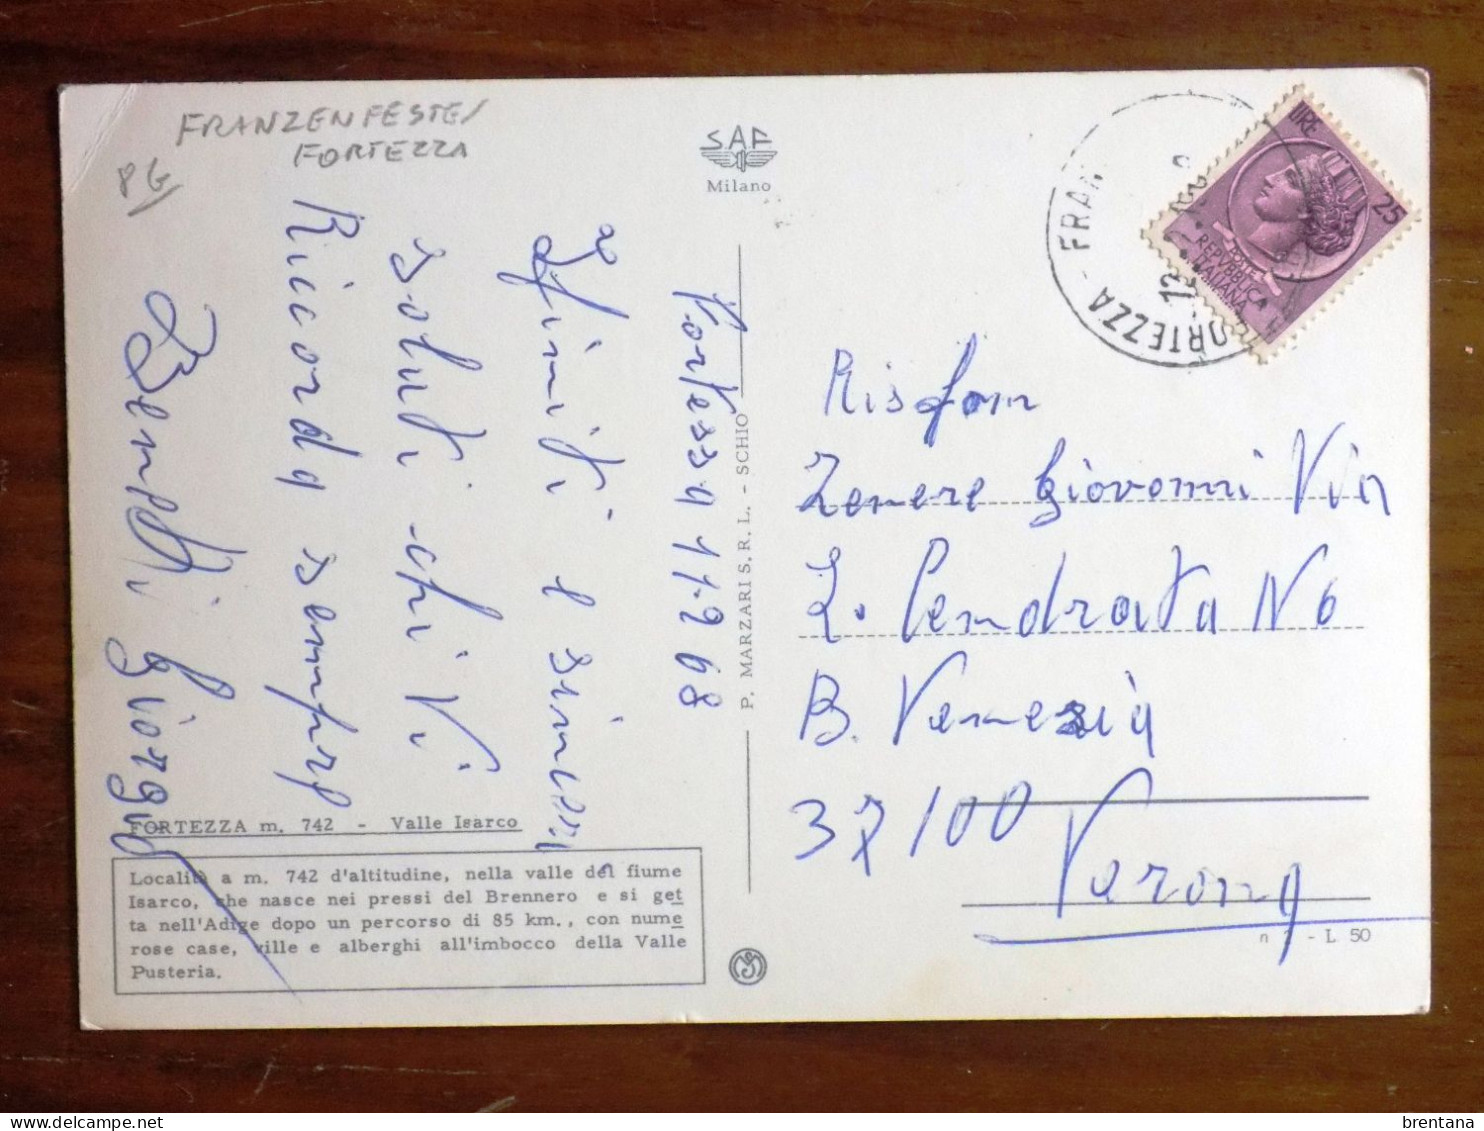 FRANZENFESTE/
FORTEZZA
SAF
Milano
Fortessa 11-9 68
Infiniti e sinceri
saluti chi Vi
Ricorda sempre
Benetti Giorgio
FORTEZZA m. 742 - Valle Isarco
Località a m. 742 d'altitudine, nella valle del fiume
Isarco, che nasce nei pressi del Brennero e si get
ta nell'Adige dopo un percorso di 85 km., con nume
rose case, ville e alberghi all'imbocco della Valle
Pusteria.
P. MARZARI S.R.L. - SCHIO
FORTEZZA - FRAN
LIRE 25
POSTE
REPVBBLICA
ITALIANA
Zenere Giovonni Via
L. Pendrata N6
B. Venezia
37100
Verona
n - L 50
brentana